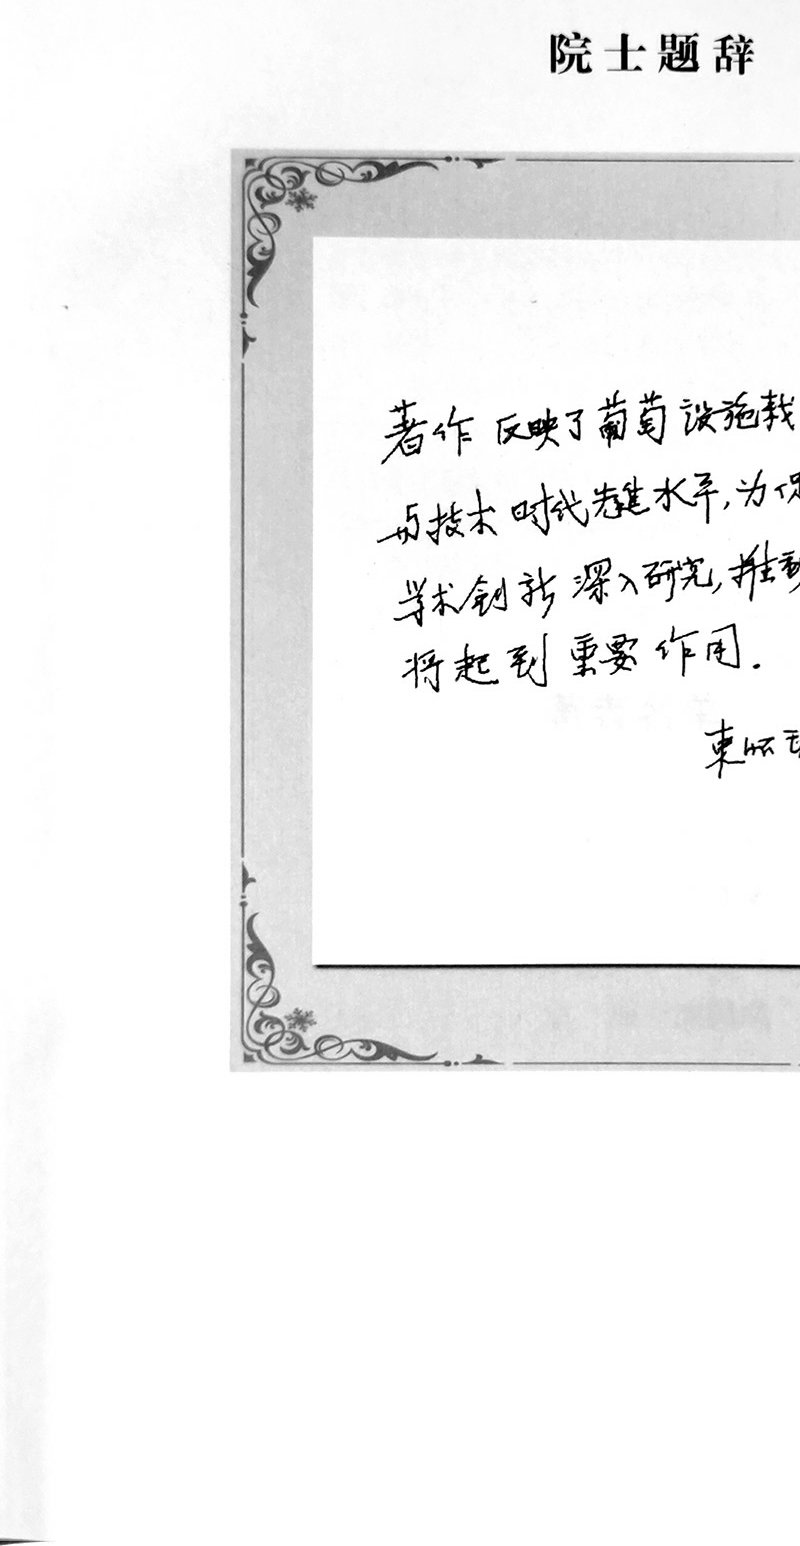 院士题辞
著作反映了葡萄设施栽
与技术时代先进水平,为促
学术创新深入研究,推动
将起到重要作用.
束怀